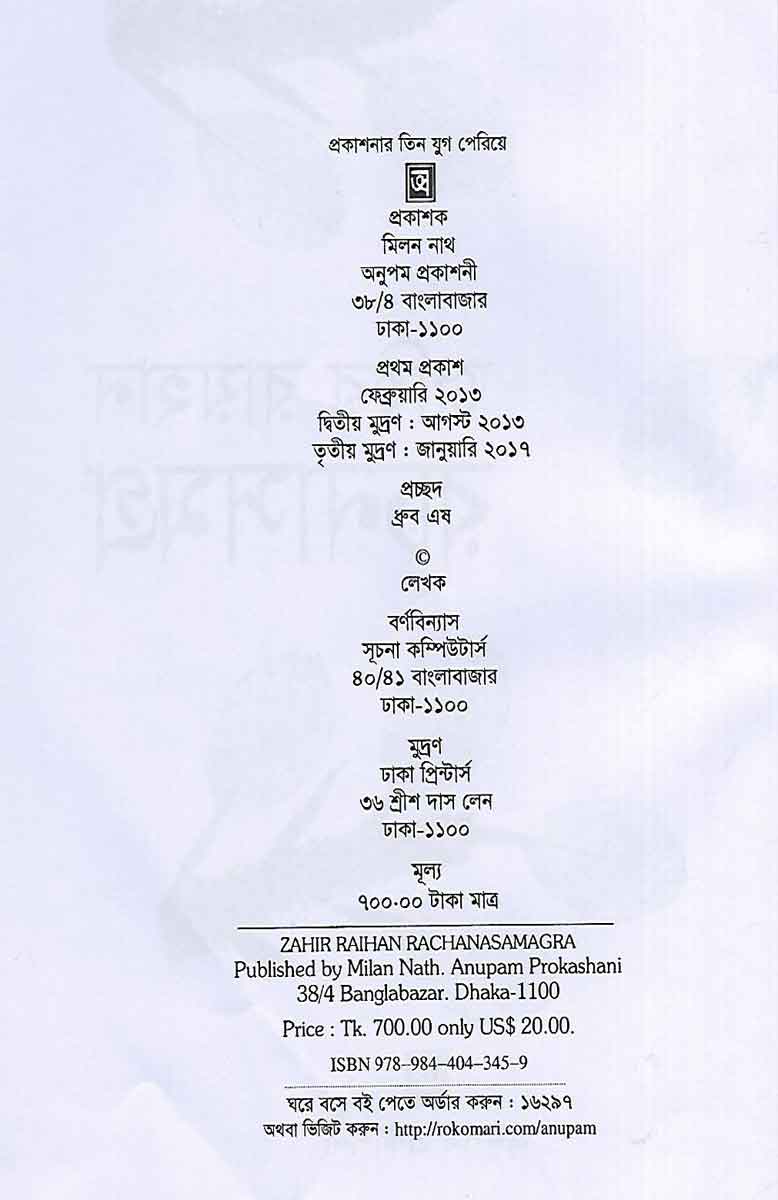 প্রকাশনার তিন যুগ পেরিয়ে
অ
প্রকাশক
মিলন নাথ
অনুপম প্রকাশনী
৩৮/৪ বাংলাবাজার
ঢাকা-১১০০
প্রথম প্রকাশ
ফেব্রুয়ারি ২০১৩
দ্বিতীয় মুদ্রণ : আগস্ট ২০১৩
তৃতীয় মুদ্রণ : জানুয়ারি ২০১৭
প্রচ্ছদ
ধ্রুব এষ
©
লেখক
বর্ণবিন্যাস
সূচনা কম্পিউটার্স
৪০/৪১ বাংলাবাজার
ঢাকা-১১০০
মুদ্রণ
ঢাকা প্রিন্টার্স
৩৬ শ্রীশ দাস লেন
ঢাকা-১১০০
মূল্য
৭০০.০০ টাকা মাত্র
ZAHIR RAIHAN RACHANASAMAGRA
Published by Milan Nath. Anupam Prokashani
38/4 Banglabazar. Dhaka-1100
Price : Tk. 700.00 only US$ 20.00.
ISBN 978–984–404–345–9
ঘরে বসে বই পেতে অর্ডার করুন : ১৬২৯৭
অথবা ভিজিট করুন : http://rokomari.com/anupam